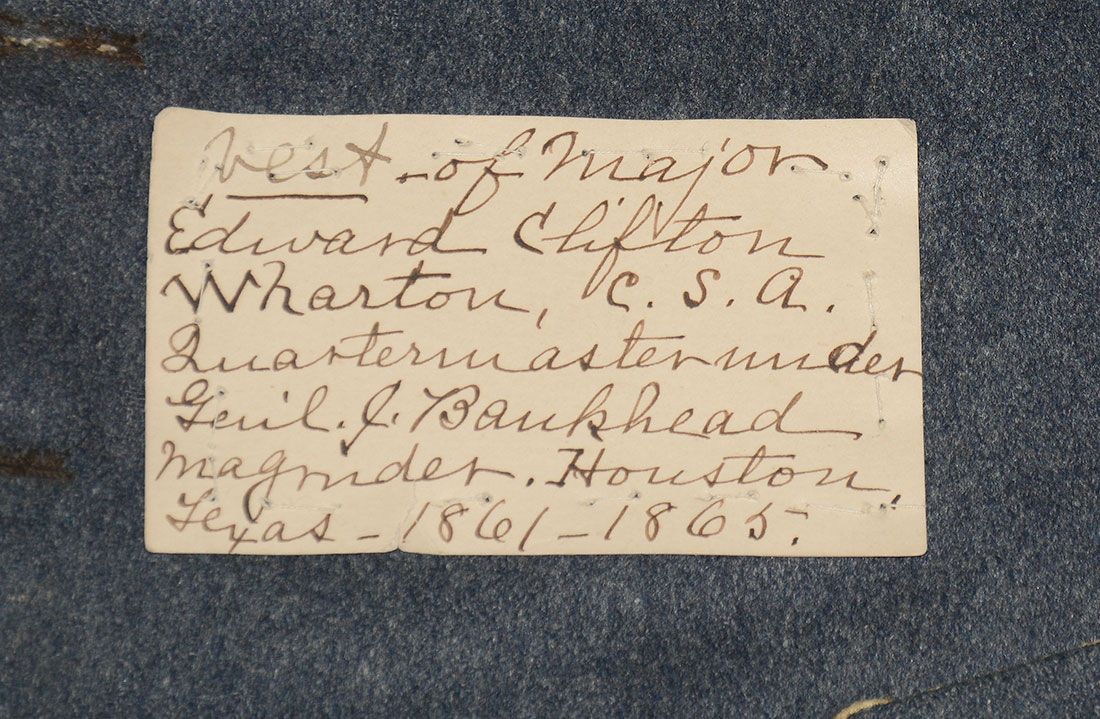 Vest - of Major
Edward Clifton
Wharton, C. S. A.
Quartermaster under
Genl. J. Bankhead
Magruder. Houston,
Texas - 1861 - 1865.